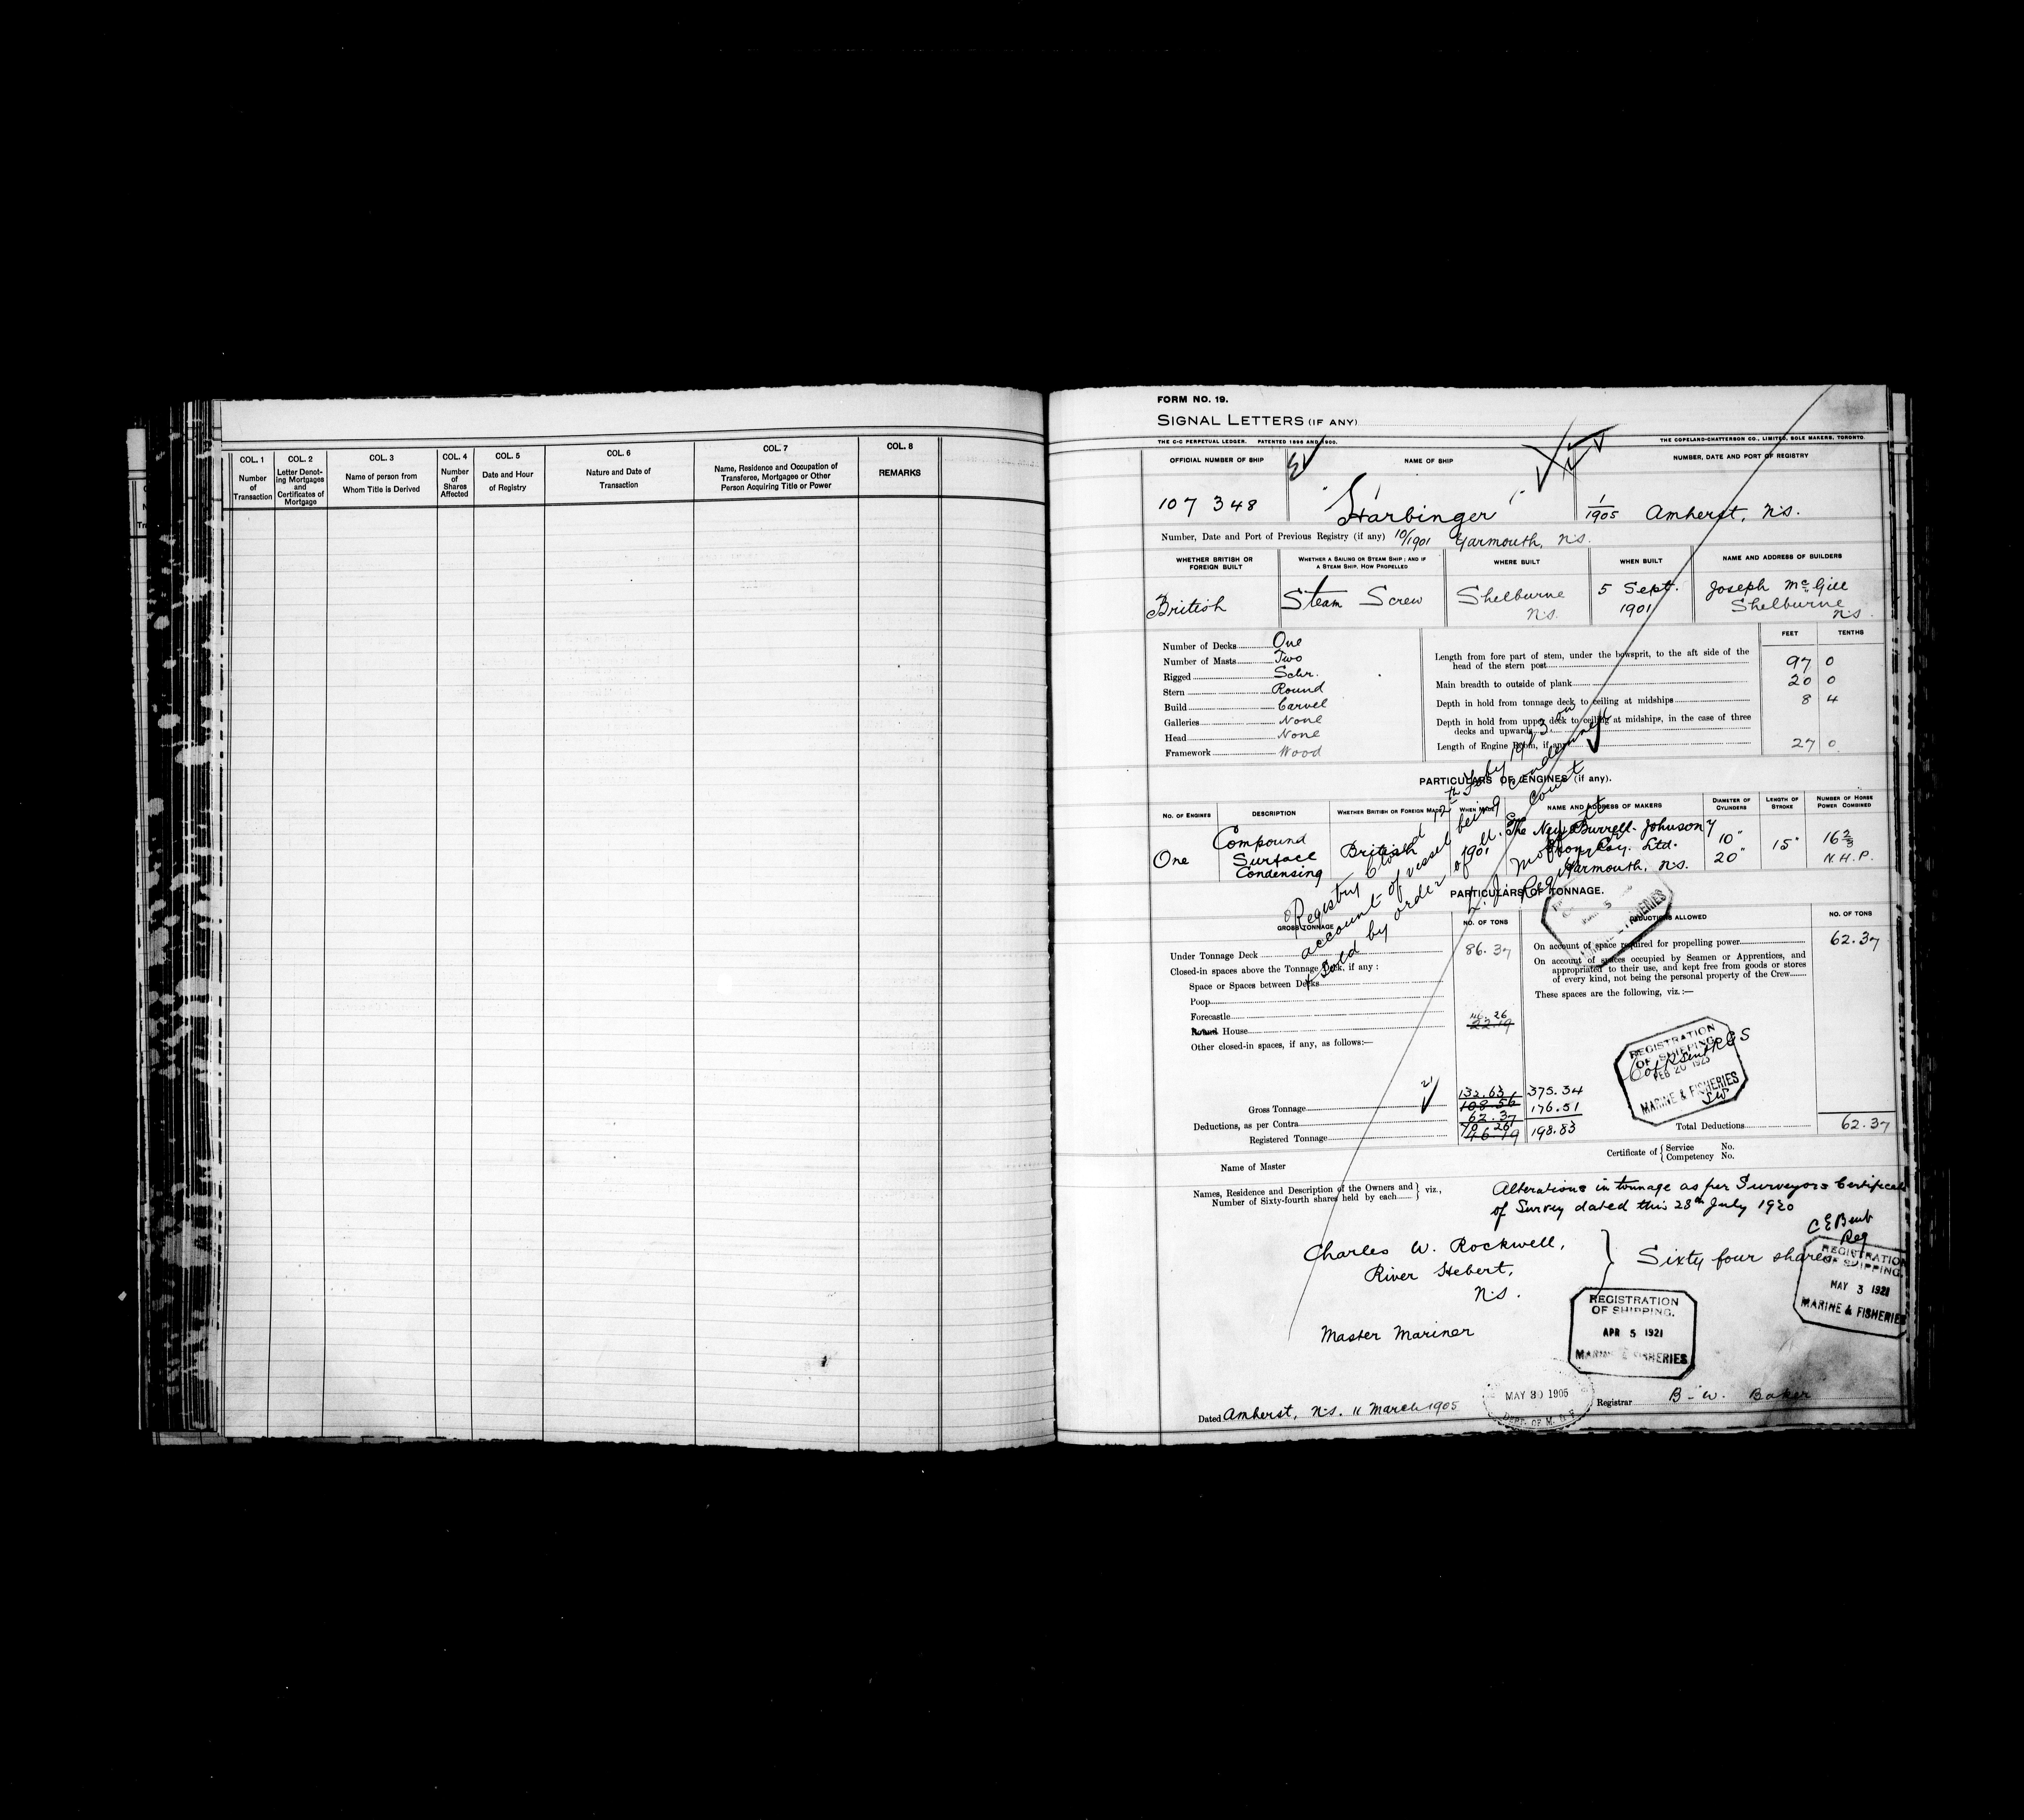 COL. 1
Number
of
Transaction
COL. 2
Letter Denot-
ing Mortgages
and
Certificates of
Mortgage
COL. 3
Name of person from
Whom Title is Derived
COL. 4
Number
of
Shares
Affected
COL. 5
Date and Hour
of Registry
COL. 6
Nature and Date of
Transaction
COL. 7
Name, Residence and Occupation of
Transferee, Mortgagee or Other
Person Acquiring Title or Power
COL. 8
REMARKS
FORM NO. 19.
SIGNAL LETTERS (IF ANY)
THE C-C PERPETUAL LEDGER. PATENTED 1896 AND 1900.
THE COPELAND-CHATTERSON CO., LIMITED, SOLE MAKERS, TORONTO.
OFFICIAL NUMBER OF SHIP
NAME OF SHIP
NUMBER, DATE AND PORT OF REGISTRY
107 348
"Harbinger"
1/1905 Amherst, N.S.
Number, Date and Port of Previous Registry (if any) 10/1901 Yarmouth, N.S.
WHETHER BRITISH OR
FOREIGN BUILT
WHETHER A SAILING OR STEAM SHIP; AND IF
A STEAM SHIP, HOW PROPELLED
WHERE BUILT
WHEN BUILT
NAME AND ADDRESS OF BUILDERS
British
Steam Screw
Shelburne
N.S.
5 Sept.
1901
Joseph McGill
Shelburne
N.S.
Number of Decks One
Number of Masts Two
Rigged Schr.
Stern Round
Build Carvel
Galleries None
Head None
Framework Wood
FEET TENTHS
Length from fore part of stem, under the bowsprit, to the aft side of the
head of the stern post 97 0
Main breadth to outside of plank 20 0
Depth in hold from tonnage deck to ceiling at midships 8 4
Depth in hold from upper deck to ceiling at midships, in the case of three
decks and upwards
Length of Engine Room, if any 27 0
PARTICULARS OF ENGINES (if any).
NO. OF ENGINES
DESCRIPTION
WHETHER BRITISH OR FOREIGN MADE
WHEN MADE
NAME AND ADDRESS OF MAKERS
DIAMETER OF
CYLINDERS
LENGTH OF
STROKE
NUMBER OF HORSE
POWER COMBINED
One
Compound
Surface
Condensing
British
1901
The New Burrell-Johnson
Iron Coy. Ltd.
Yarmouth, N.S.
10"
20"
15"
16 2/3
N.H.P.
Registry Closed 12th Feby 1923 on
account of vessel being condemned
& sold by order of Court
Registrar
PARTICULARS OF TONNAGE.
GROSS TONNAGE
NO. OF TONS
DEDUCTIONS ALLOWED
NO. OF TONS
Under Tonnage Deck 86.37
Closed-in spaces above the Tonnage Deck, if any:
Space or Spaces between Decks
Poop
Forecastle
Round House 46.26
22.19
Other closed-in spaces, if any, as follows:—
Gross Tonnage 132.63 375.34
108.56 176.51
Deductions, as per Contra 62.37
Registered Tonnage 70.26 198.83
46.19
On account of space required for propelling power 62.37
On account of spaces occupied by Seamen or Apprentices, and
appropriated to their use, and kept free from goods or stores
of every kind, not being the personal property of the Crew
These spaces are the following, viz.:—
REGISTRATION
OF SHIPPING.
FEB 20 1923
MARINE & FISHERIES
Total Deductions 62.37
Name of Master
Certificate of { Service No.
Competency No.
Names, Residence and Description of the Owners and
Number of Sixty-fourth shares held by each } viz.,
Alterations in tonnage as per Surveyors Certificate
of Survey dated this 28th July 1920
Reg
Charles W. Rockwell,
River Hebert,
N.S.
Sixty four shares
Master Mariner
REGISTRATION
OF SHIPPING.
MAY 3 1921
MARINE & FISHERIES
REGISTRATION
OF SHIPPING.
APR 5 1921
MARINE & FISHERIES
MAY 30 1905
DEPT. OF M. & F.
Dated Amherst, N.S. 11 March 1905
Registrar B. W. Baker